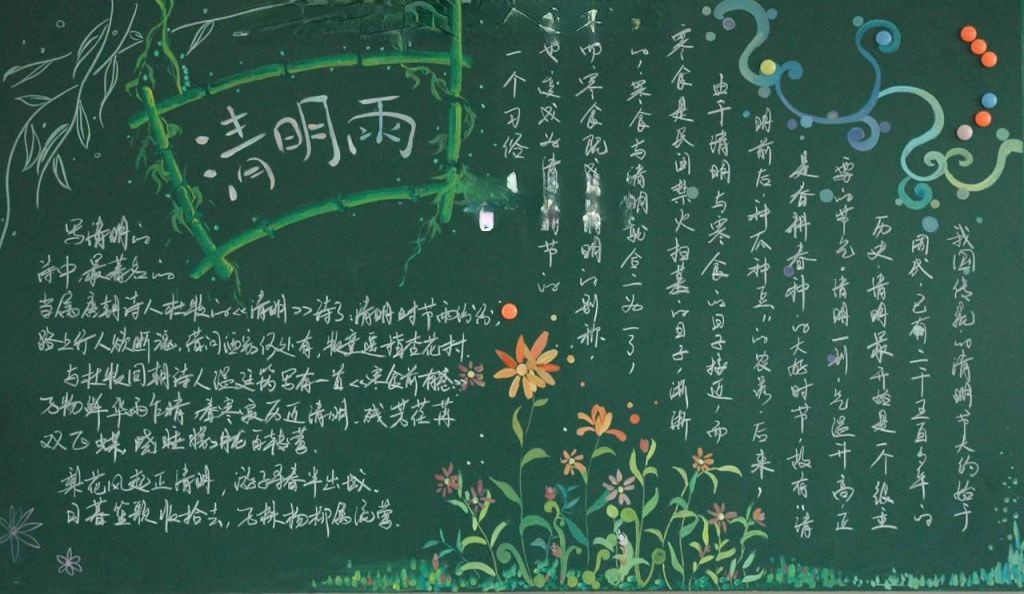 清明雨
我国传统的清明节大约始于
周代,已有二千五百多年的
历史.清明最开始是一个很重
要的节气.清明一到,气温升高正
是春耕春种的大好时节,故有"清
明前后,种瓜种豆"的农谚.后来,
由于清明与寒食的日子接近,而
寒食是民间禁火扫墓的日子,渐渐
的,寒食与清明就合二为一了,
而寒食既成清明的别称,
也变成为清明时节的
一个习俗
写清明的
诗中,最著名的
当属唐朝诗人杜牧的<<清明>>诗了:清明时节雨纷纷,
路上行人欲断魂.借问酒家何处有,牧童遥指杏花村
与杜牧同朝诗人温庭筠写有一首<<寒食前有怀>>
万物鲜华雨乍晴,春寒寂历近清明.残芳荏苒
双飞蝶,晓睡朦胧百啭莺.
梨花风起正清明,游子寻春半出城.
日暮笙歌收拾去,万株杨柳属流莺.